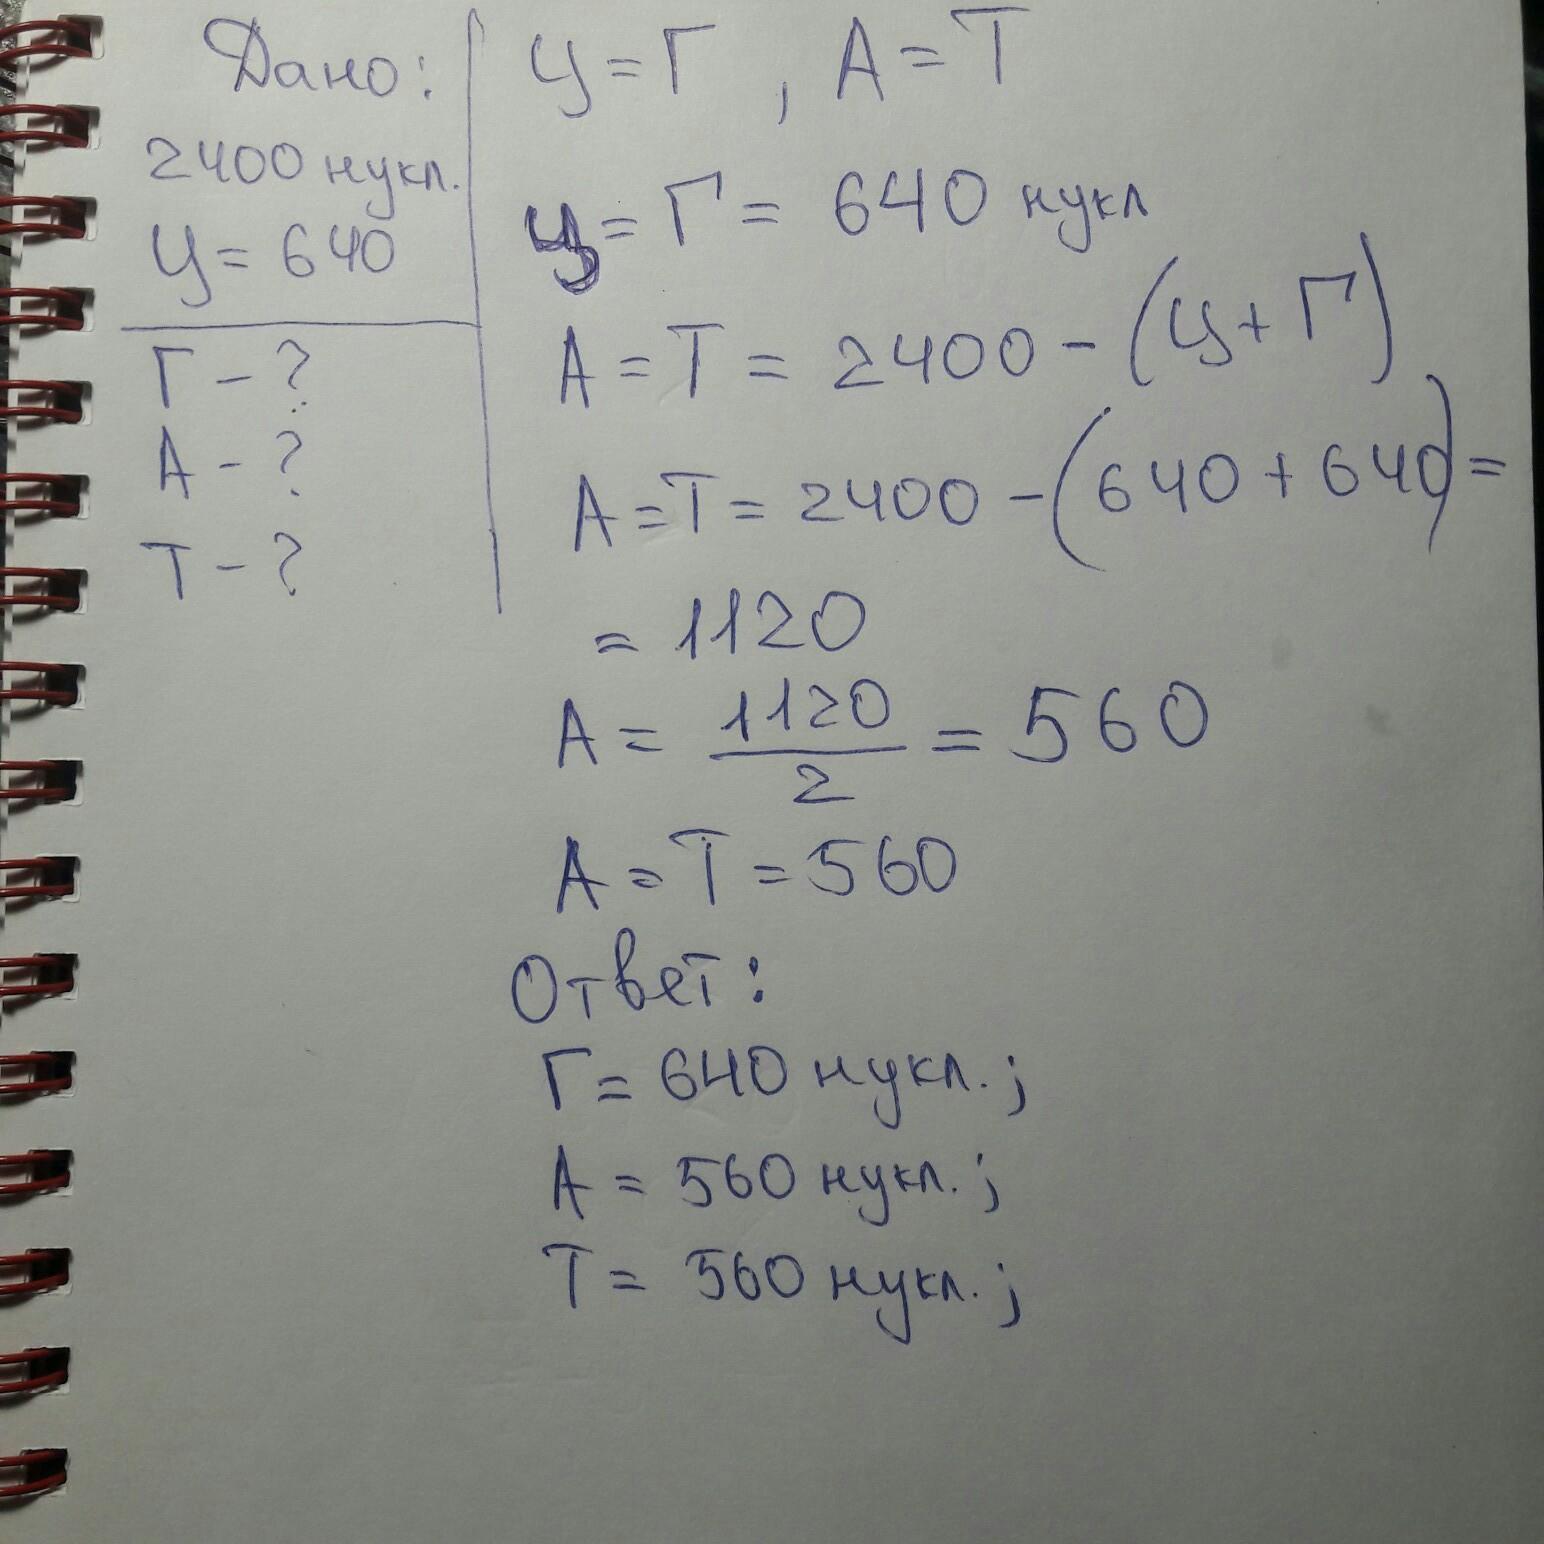 Дано:
2400 нукл.
Ц = 640
Г - ?
А - ?
Т - ?
Ц = Г , А = Т
Ц = Г = 640 нукл
А = Т = 2400 - (Ц + Г)
А = Т = 2400 - (640 + 640) =
= 1120
А = 1120/2 = 560
А = Т = 560
Ответ:
Г = 640 нукл.;
А = 560 нукл.;
Т = 560 нукл.;